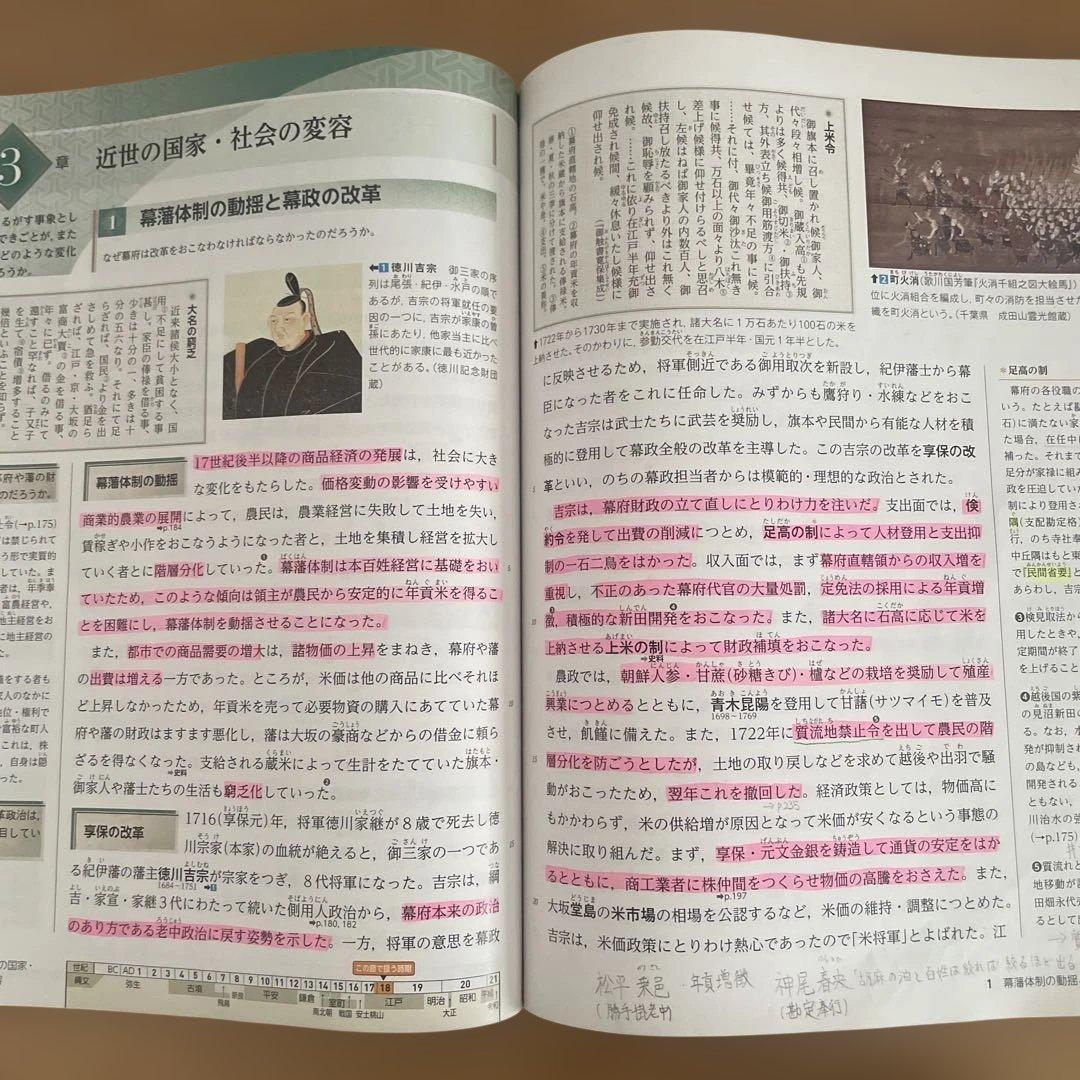 3
章
近世の国家・社会の変容
るがす事象とし
できごとが、また
どのような変化
ろうか。
1 幕藩体制の動揺と幕政の改革
なぜ幕府は改革をおこなわなければならなかったのだろうか。
*大名の窮乏
近来諸侯大小となく、国
用不足にして貧困する事
甚し。家臣の俸禄を借る事、
少きは十分の一、多きは十
分の五六なり。それにて足
らざれば、国民より金を出
さしめて急を救ふ。猶足ら
ざれば、江戸・京・大坂の
富商大賈の金を借る事、
年々に已ず。借るのみにて
還すこと罕なれば、子又子
を生て、宿債増多すること
幾倍といふことを知らず。
←1 徳川吉宗 御三家の序
列は尾張・紀伊・水戸の順で
あるが、吉宗の将軍就任の要
因の一つに、吉宗が家康の曽
孫にあたり、他家当主に比べ
世代的に家康に最も近かった
ことがある。(徳川記念財団
蔵)
幕藩体制の動揺
17世紀後半以降の商品経済の発展は、社会に大き
な変化をもたらした。価格変動の影響を受けやすい
商業的農業の展開によって、農民は、農業経営に失敗して土地を失い、
➡p.184
賃稼ぎや小作をおこなうようになった者と、土地を集積し経営を拡大し
ていく者とに階層分化していった。❶幕藩体制は本百姓経営に基礎をおい
ていたため、このような傾向は領主が農民から安定的に年貢米を得るこ
とを困難にし、幕藩体制を動揺させることになった。
また、都市での商品需要の増大は、諸物価の上昇をまねき、幕府や藩
の出費は増える一方であった。ところが、米価は他の商品に比べそれほ
ど上昇しなかったため、年貢米を売って必要物資の購入にあてていた幕
府や藩の財政はますます悪化し、藩は大坂の豪商などからの借金に頼ら
ざるを得なくなった。支給される蔵米によって生計をたてていた旗本・
➡史料
御家人や藩士たちの生活も窮乏化していった。❷
享保の改革
1716(享保元)年、将軍徳川家継が8歳で死去し徳
川宗家(本家)の血統が絶えると、御三家の一つであ
る紀伊藩の藩主徳川吉宗が宗家をつぎ、8代将軍になった。吉宗は、綱
1684〜1751 ➡1
吉・家宣・家継3代にわたって続いた側用人政治から、幕府本来の政治
➡p.180, 182
のあり方である老中政治に戻す姿勢を示した。一方、将軍の意思を幕政
この節で扱う時期
世紀 BC AD 1 2 3 4 5 6 7 8 9 10 11 12 13 14 15 16 17 18 19 20 21
縄文 弥生 古墳 飛鳥 奈良 平安 鎌倉 南北朝 室町 戦国 安土桃山 江戸 明治 大正 昭和 平成 令和
*上米令
御旗本に召し置かれ候御家人、御
代々段々相増し候。御蔵入高①も先規
よりは多く候得共、御切米②・御扶持③
方、其外表立ち候御用筋渡方④に引合
せ候ては、畢竟年々不足の事に候。
……それに付、御代々御沙汰これ無き
事に候得共、万石以上の面々より八木⑤
差上げ候様に仰せ付けらるべしと思召
し、左候はねば御家人の内数百人、御
扶持召し放たるべきより外はこれ無く
候故、御恥辱を顧みられず、仰せ出さ
れ候。……これに依り在江戸半年充御
免成され候間、緩々休息いたし候様に
仰せ出され候。
(『御触書寛保集成』)
↑1722年から1730年まで実施され、諸大名に1万石あたり100石の米を
上納させた。そのかわりに、参勤交代を在江戸半年・国元1年半とした。
↑2 町火消(歌川国芳筆『火消千組之図大絵馬』)
位に火消組合を編成し、町々の消防を担当させ
織を町火消という。(千葉県 成田山霊光館蔵)
に反映させるため、将軍側近である御用取次を新設し、紀伊藩士から幕
臣になった者をこれに任命した。みずからも鷹狩り・水練などをおこな
った吉宗は武士たちに武芸を奨励し、旗本や民間から有能な人材を積
極的に登用して幕政全般の改革を主導した。この吉宗の改革を享保の改
革といい、のちの幕政担当者からは模範的・理想的な政治とされた。
吉宗は、幕府財政の立て直しにとりわけ力を注いだ。支出面では、倹
約令を発して出費の削減につとめ、足高の制によって人材登用と支出抑
制の一石二鳥をはかった。収入面では、まず幕府直轄領からの収入増を
重視し、不正のあった幕府代官の大量処罰、定免法の採用による年貢増
徴❸、積極的な新田開発❹をおこなった。また、諸大名に石高に応じて米を
上納させる上米の制によって財政補塡をおこなった。
➡史料
農政では、朝鮮人参・甘蔗(砂糖きび)・櫨などの栽培を奨励して殖産
興業につとめるとともに、青木昆陽を登用して甘藷(サツマイモ)を普及
1698〜1769
させ、飢饉に備えた。また、1722年に質流地禁止令❺を出して農民の階
層分化を防ごうとしたが、土地の取り戻しなどを求めて越後や出羽で騒
動がおこったため、翌年これを撤回した。経済政策としては、物価高に
→p.235
もかかわらず、米の供給増が原因となって米価が安くなるという事態の
解決に取り組んだ。まず、享保・元文金銀を鋳造して通貨の安定をはか
るとともに、商工業者に株仲間をつくらせ物価の高騰をおさえた。また、
➡p.197
大坂堂島の米市場の相場を公認するなど、米価の維持・調整につとめた。
吉宗は、米価政策にとりわけ熱心であったので「米将軍」とよばれた。江
*足高の制
幕府の各役職の
いう。たとえば勘
石)に満たない家
た場合、在任中に
補った。それまで
足分が家禄に組み
政を圧迫していた
制により登用され
隅(支配勘定格)
行、のち寺社奉
中丘隅はもと東
で『民間省要』と
られ、吉宗に
❸検見取法から
用したときや、
定期間が終了
を上げること
❹越後国の紫
の見沼新田の
る。なお、水
発が抑制され
の島なども、
開発される
ともない、
川治水の強
(→p.175)
❺質流れと
地移動が認
田畑永代売
るとして
松平乗邑 ・年貢増徴 神尾春央「胡麻の油と百姓は絞れば絞るほど出る
(勝手掛老中) (勘定奉行)
1 幕藩体制の動揺